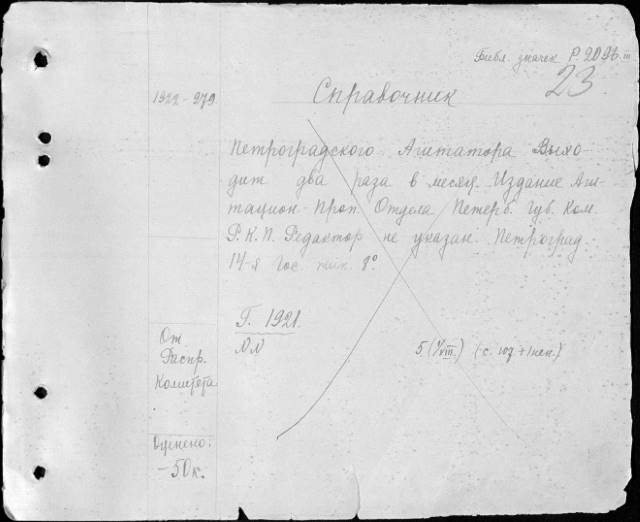 Библ. значек Р. 2096 III
23
1922 - 979
Справочник
Петроградского Агитатора Выхо
дит два раза в месяц. Издание Аги-
тацион - Проп. Отдела Петерб. Губ. Ком.
Р. К. П. Редактор не указан. Петроград
14-я Гос. тип. 8°.
Г. 1921.
NN
5 (1/VIII.) (-с. 107 + 1 нен.)
От
Распр.
Комитета
Оценено:
- 50 к.